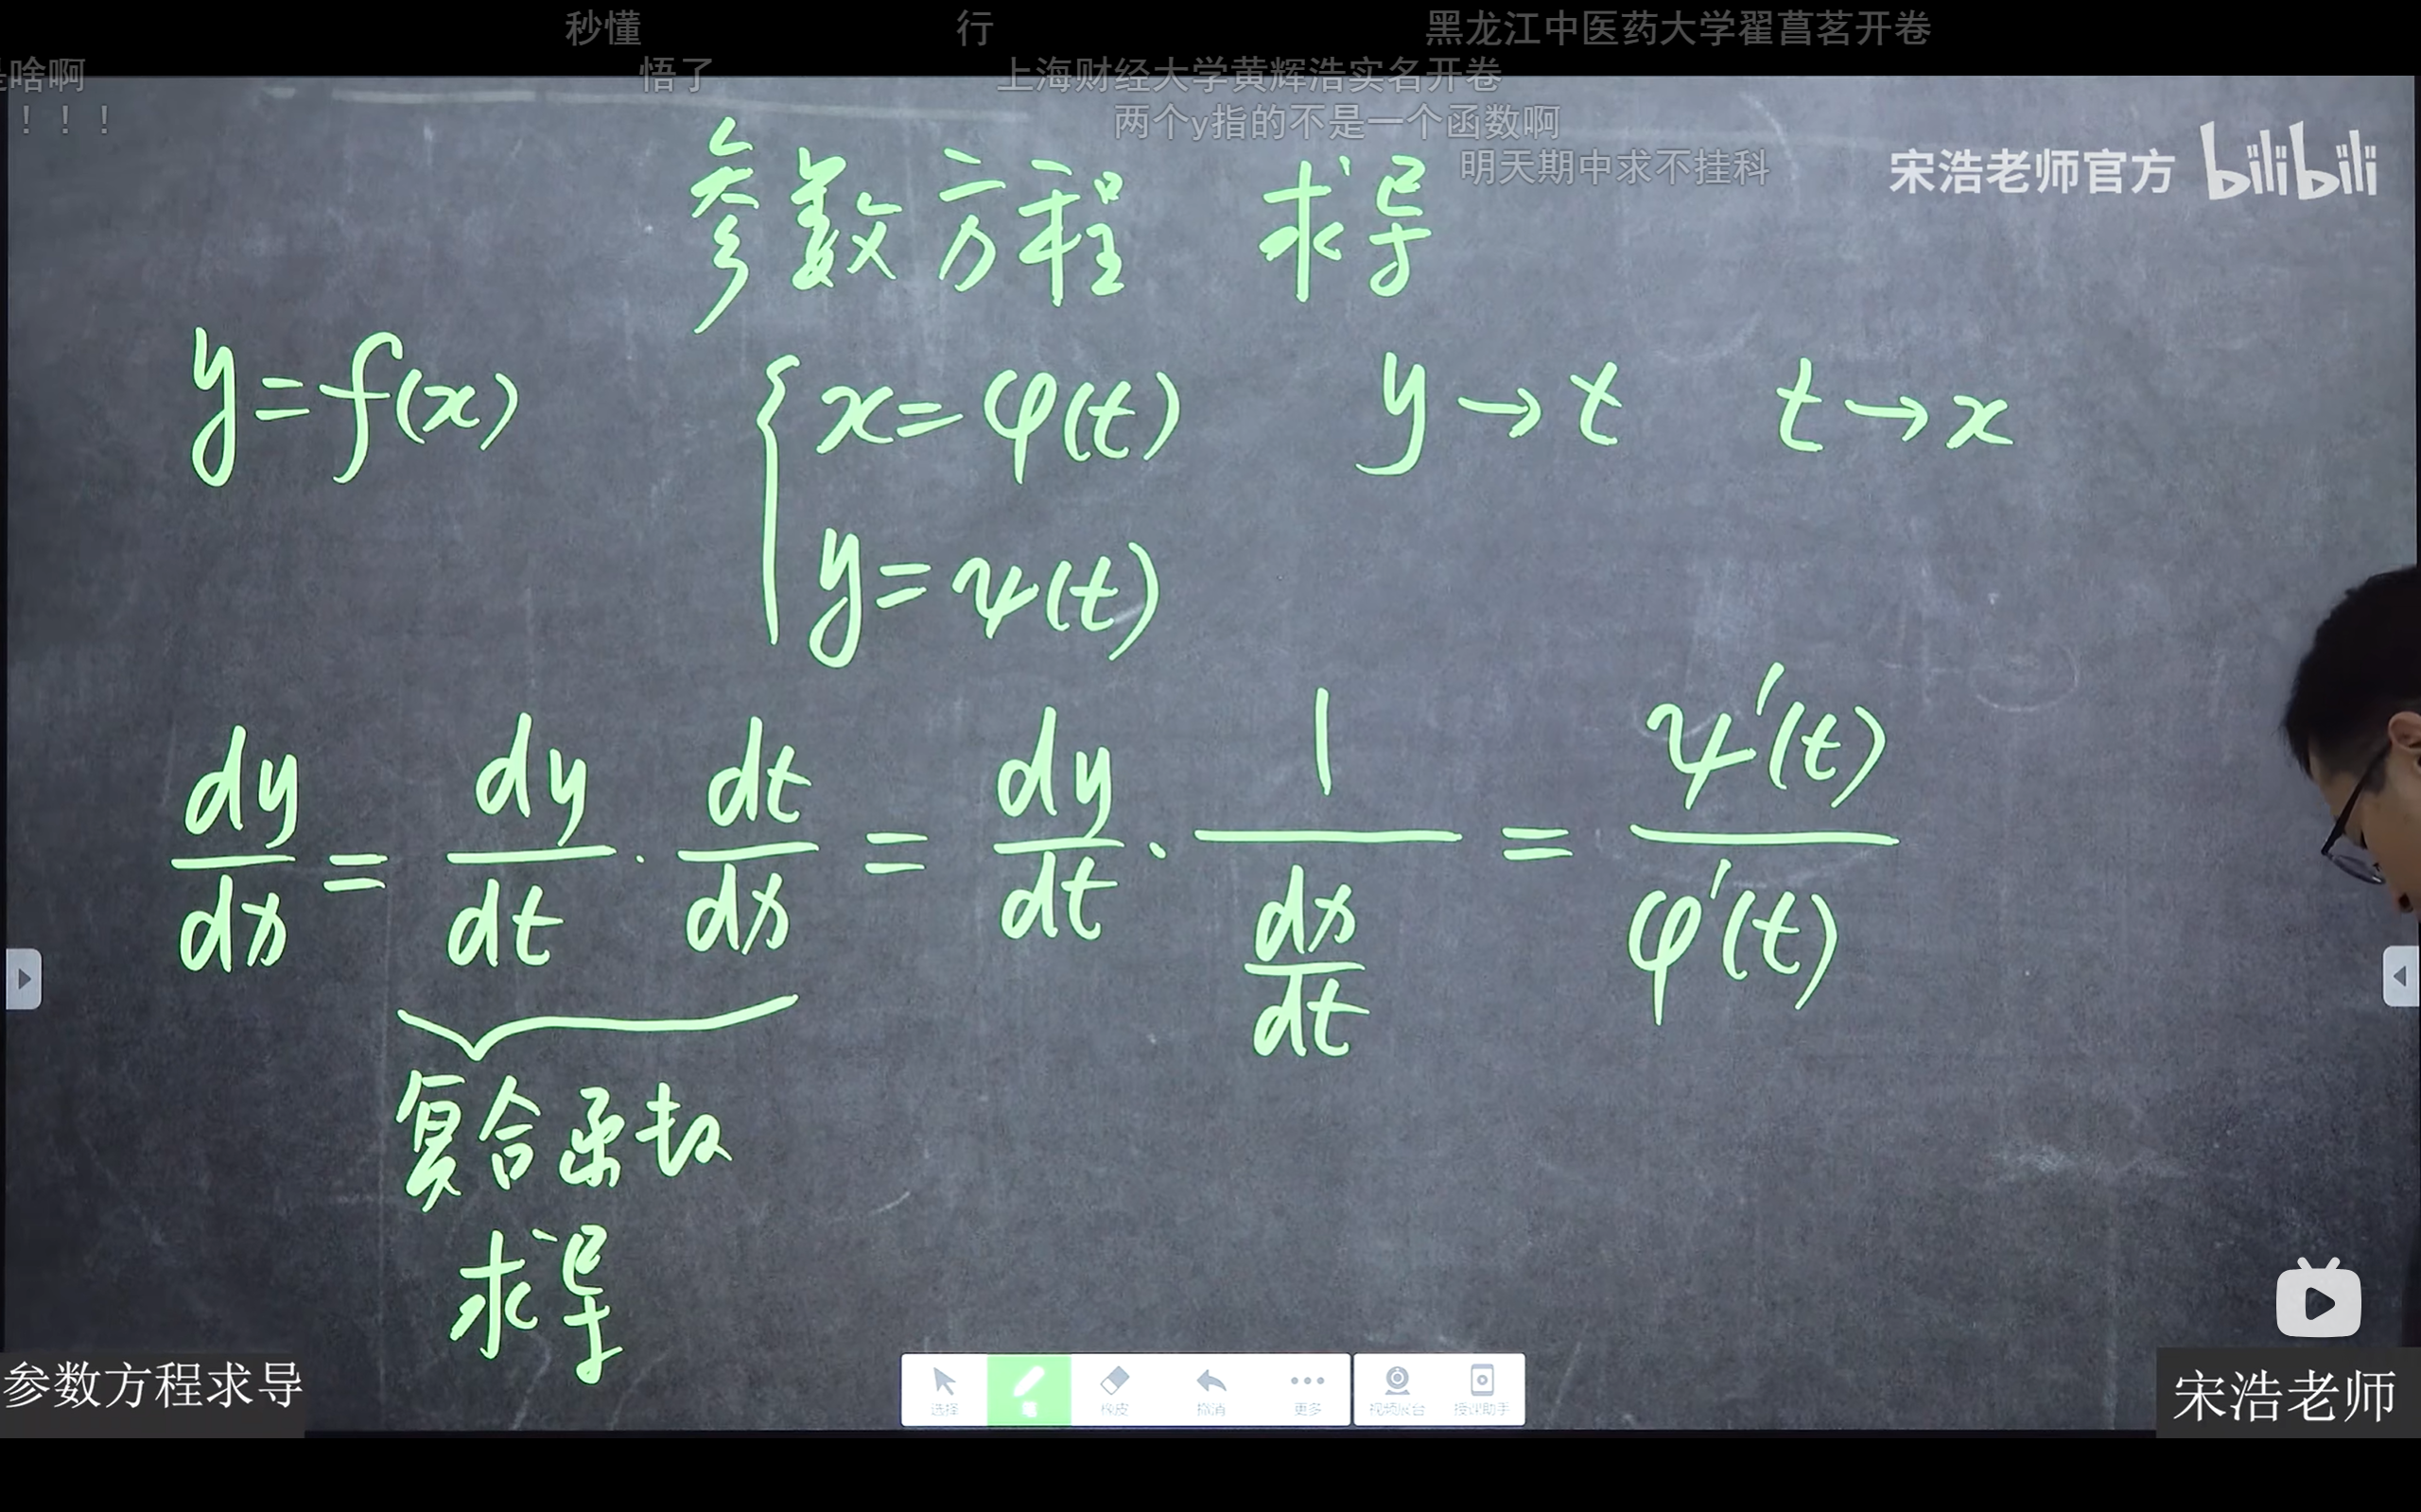 秒懂 行 黑龙江中医药大学翟菖茗开卷
是啥啊 悟了 上海财经大学黄辉浩实名开卷
！！！ 两个y指的不是一个函数啊
明天期中求不挂科
宋浩老师官方 bilibili
参数方程 求导
y=f(x) { x=φ(t) y→t t→x
y=ψ(t)
dy/dx = dy/dt · dt/dx = dy/dt · 1/(dx/dt) = ψ′(t)/φ′(t)
复合函数
求导
参数方程求导
选择 笔 橡皮 撤消 更多 视频展台 授课助手
宋浩老师